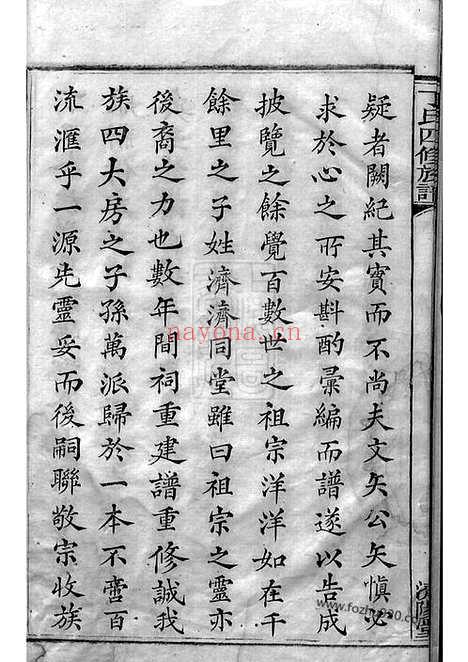 丁氏四修族譜
疑者闕紀其實而不尚夫文矢公矢慎必
求於心之所安斟酌彙編而譜遂以告成
披覽之餘覺百數世之祖宗洋洋如在千
餘里之子姓濟濟同堂雖曰祖宗之靈亦
後裔之力也數年間祠重建譜重修誠我
族四大房之子孫萬派歸於一本不啻百
流滙乎一源先靈妥而後嗣聯敬宗收族
濟陽堂
nayona.cn